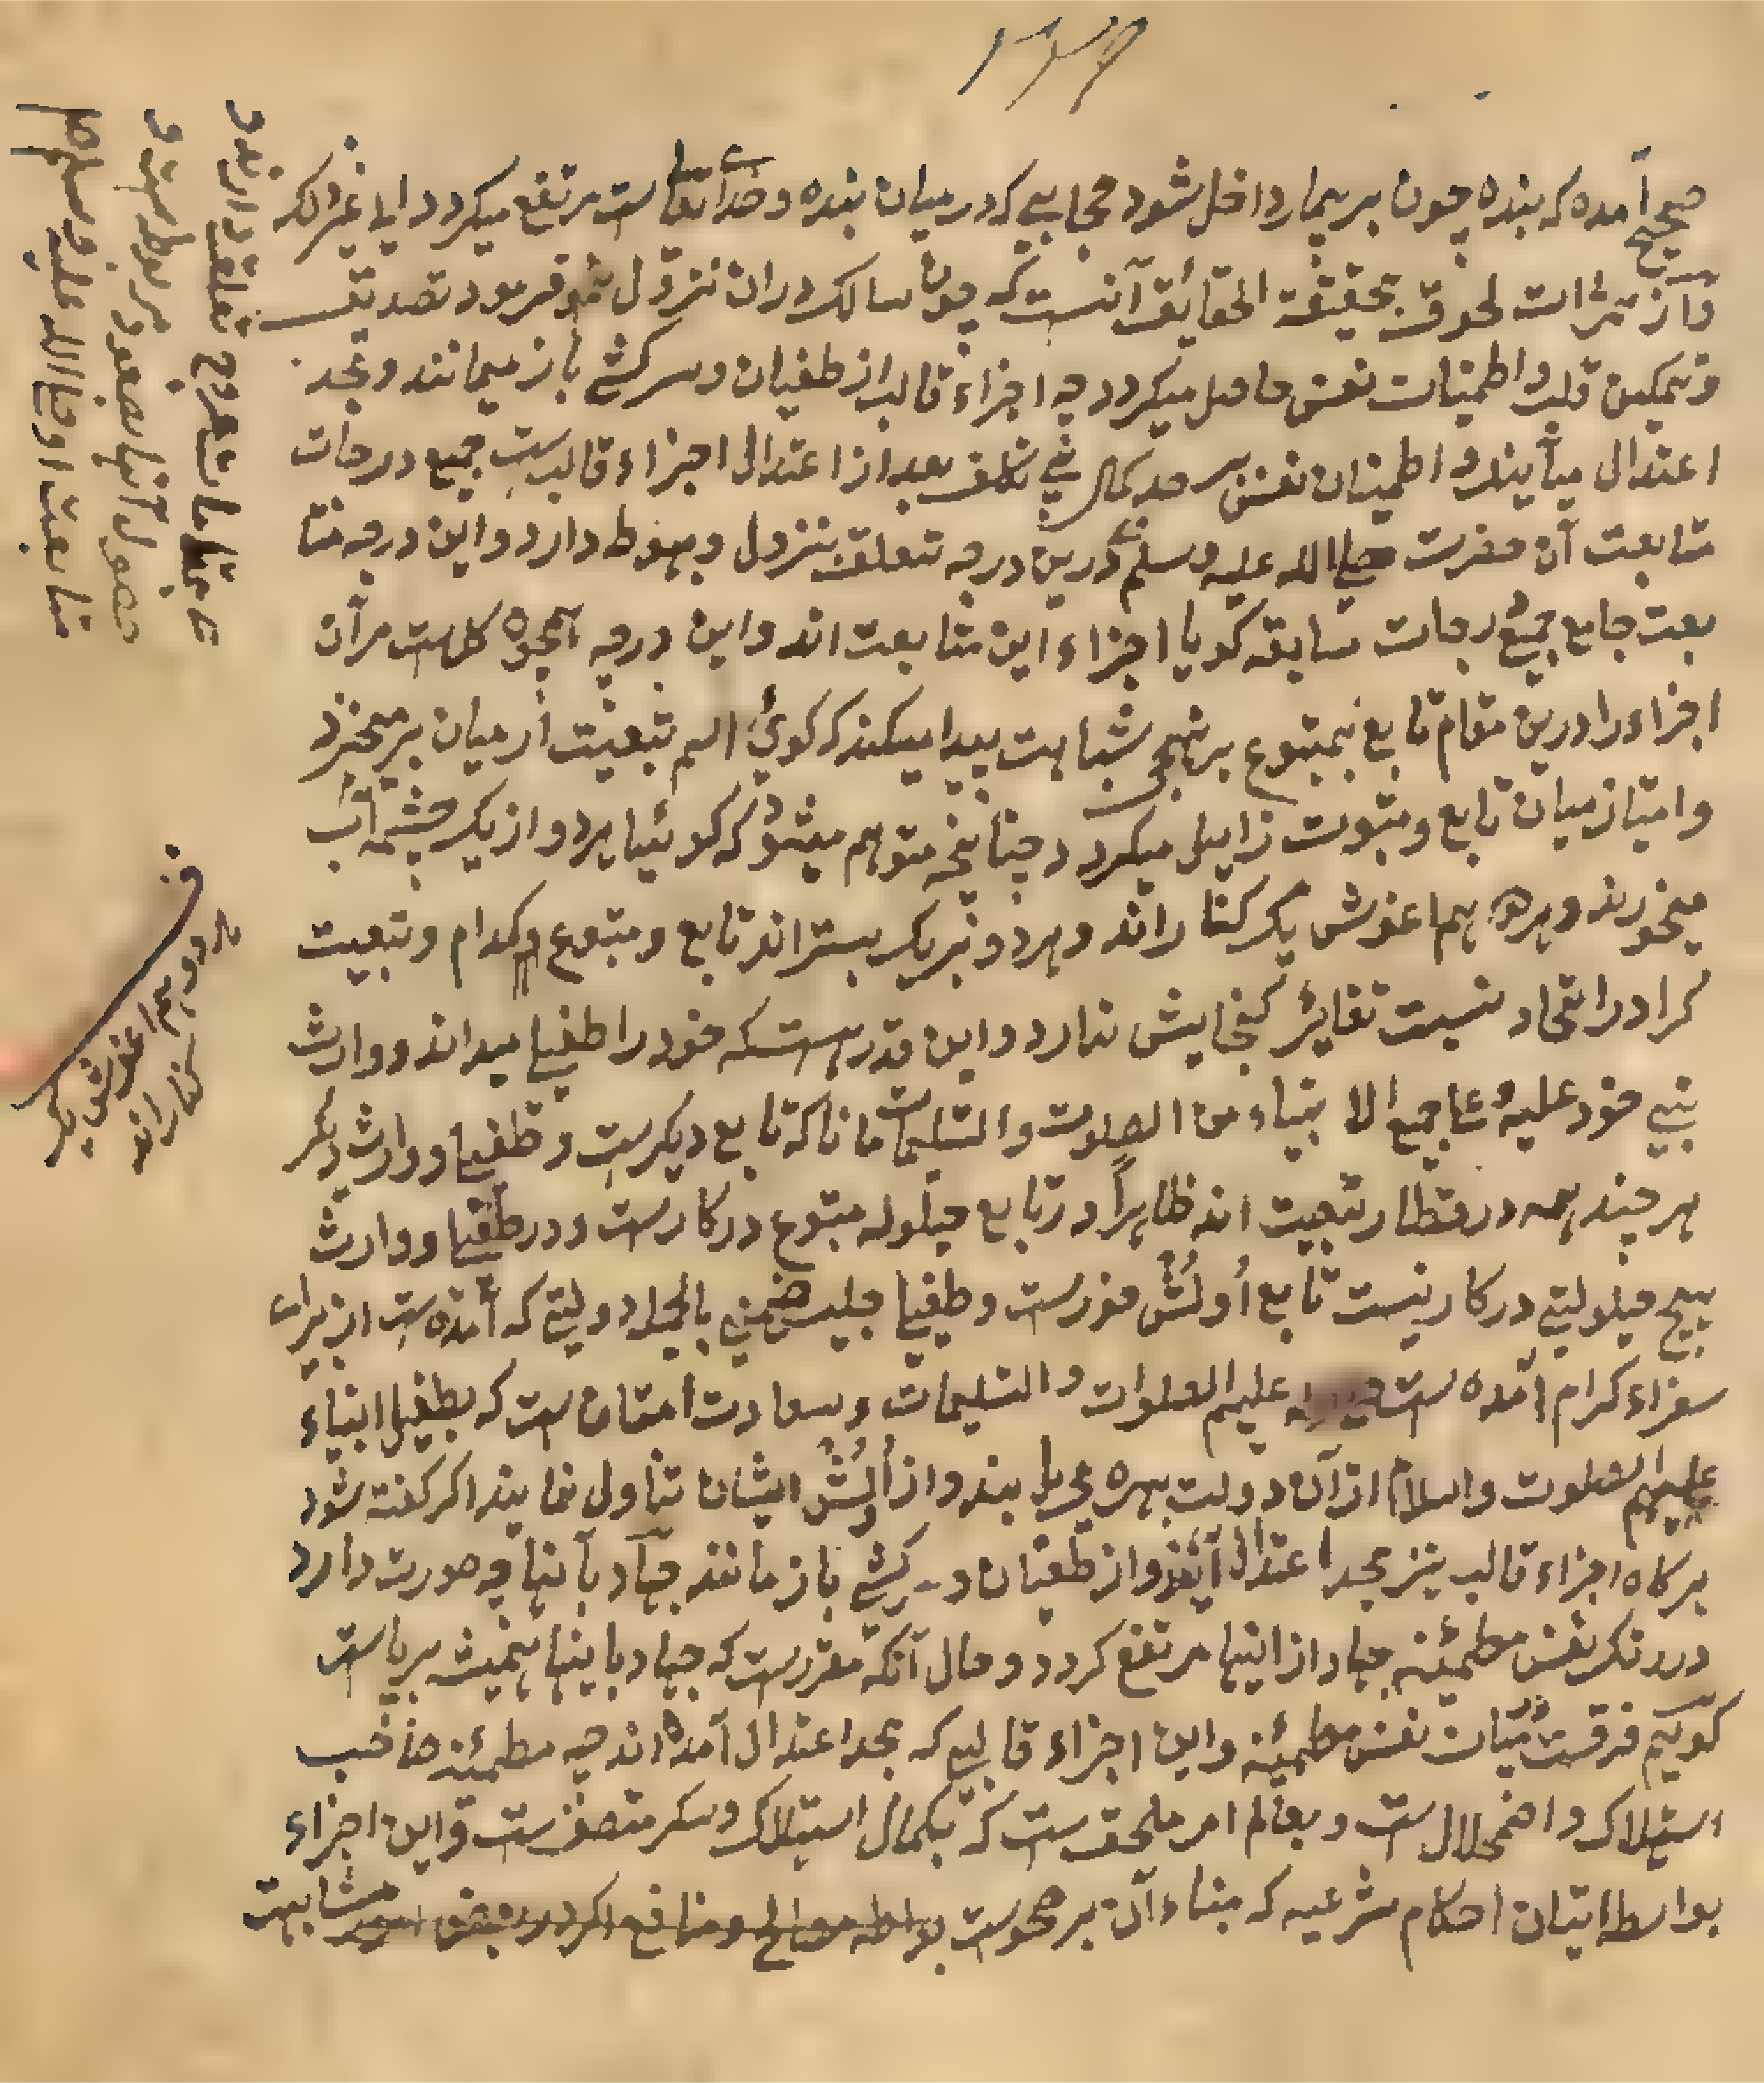 صحیح آمده که بنده چون بر بیمار داخل شود حجابی که در میان بنده و خدا تعالی است مرتفع میکردد ایا غیر ذلک
و از ثمرات لحوق بحقیقة الحقایق آنست که چون سالک دران نزول نمود فرمود تصدیق
و تمکین قلب و اطمینان نفس حاصل میکردد چه اجزاء قالب از طغیان و سرکشی باز میمانند و بحد
اعتدال میآیند و اطمینان نفس بسرحد کمال بی تکلف بعد از اعتدال اجزاء قالب ست جمیع درجات
متابعت آن حضرت صلی الله علیه وسلم درین درجه تعلق بنزول و هبوط دارد و این درجه متا
بعت جامع جمیع درجات سابقه کویا اجزاء این متابعت اند و این درجه همچو کل ست مر آن
اجزاء را درین مقام تابع بمتبوع بر نهجی شباهت پیدا میکند که کویی اسم تبعیت از میان برمیخیزد
و امتیاز میان تابع و متبوع زایل میکردد چنانچه متوهم میشود که کوئیا هر دو از یک چشمه آب
میخورند و هر دو هم اغوش یک کنار اند و هر دو بریک بستر اند تابع و متبوع کدام و تبعیت
کرا در اتحاد نسبت تغایر کنجایش ندارد و این قدر هست که خود را طفیلی میداند و وارث
نبی خود علیه و علی جمیع الانبیاء من الصلوت والتسلیمات مانا که تابع دیکرست و طفیلی و وارث دیکر
هر چند همه در قطار تبعیت اند ظاهراً در تابع حیلوله متبوع درکارست و در طفیلی و وارث
هیچ حیلولتی درکار نیست تابع اُولُش خورست و طفیلی جلیس ضمنی بالجمله دولتی که آمده ست از برای
سفراء کرام آمده ست علیهم الصلوات و التسلیمات و سعادت امتان ست که بطفیل انبیاء
علیهم الصلوت والسلام ازان دولت بهره می یابند و از اُولُش ایشان تناول نمایند اکر کفته شود
هرکاه اجزاء قالب نیز بحد اعتدال آیند و از طغیان و سرکشی باز مانند جهاد بآنها چه صورت دارد
در رنک نفس مطمئنه جهاد از اینها مرتفع کردد و حال آنکه مقررست که جهاد باینها همیشه برپاست
کوییم فرقست میان نفس مطمئنه و این اجزاء قالبی که بحد اعتدال آمده اند چه مطمئنه صاحب
استهلاک و اضمحلال ست و بعالم امر ملحق ست که بکمال استهلاک و سکر متصف ست و این اجزاء
بواسطه اتیان احکام شرعیه که مبناء آن بر صحوست بواسطه مصالح و منافع اکر در بعض امور متابعت
مقامات عروج تعلق دارند و
حصول آنها بصعود مربوط بودند و
متابعت او صلی الله علیه وسلم
هر دو هم اغوش یک
کنار اند